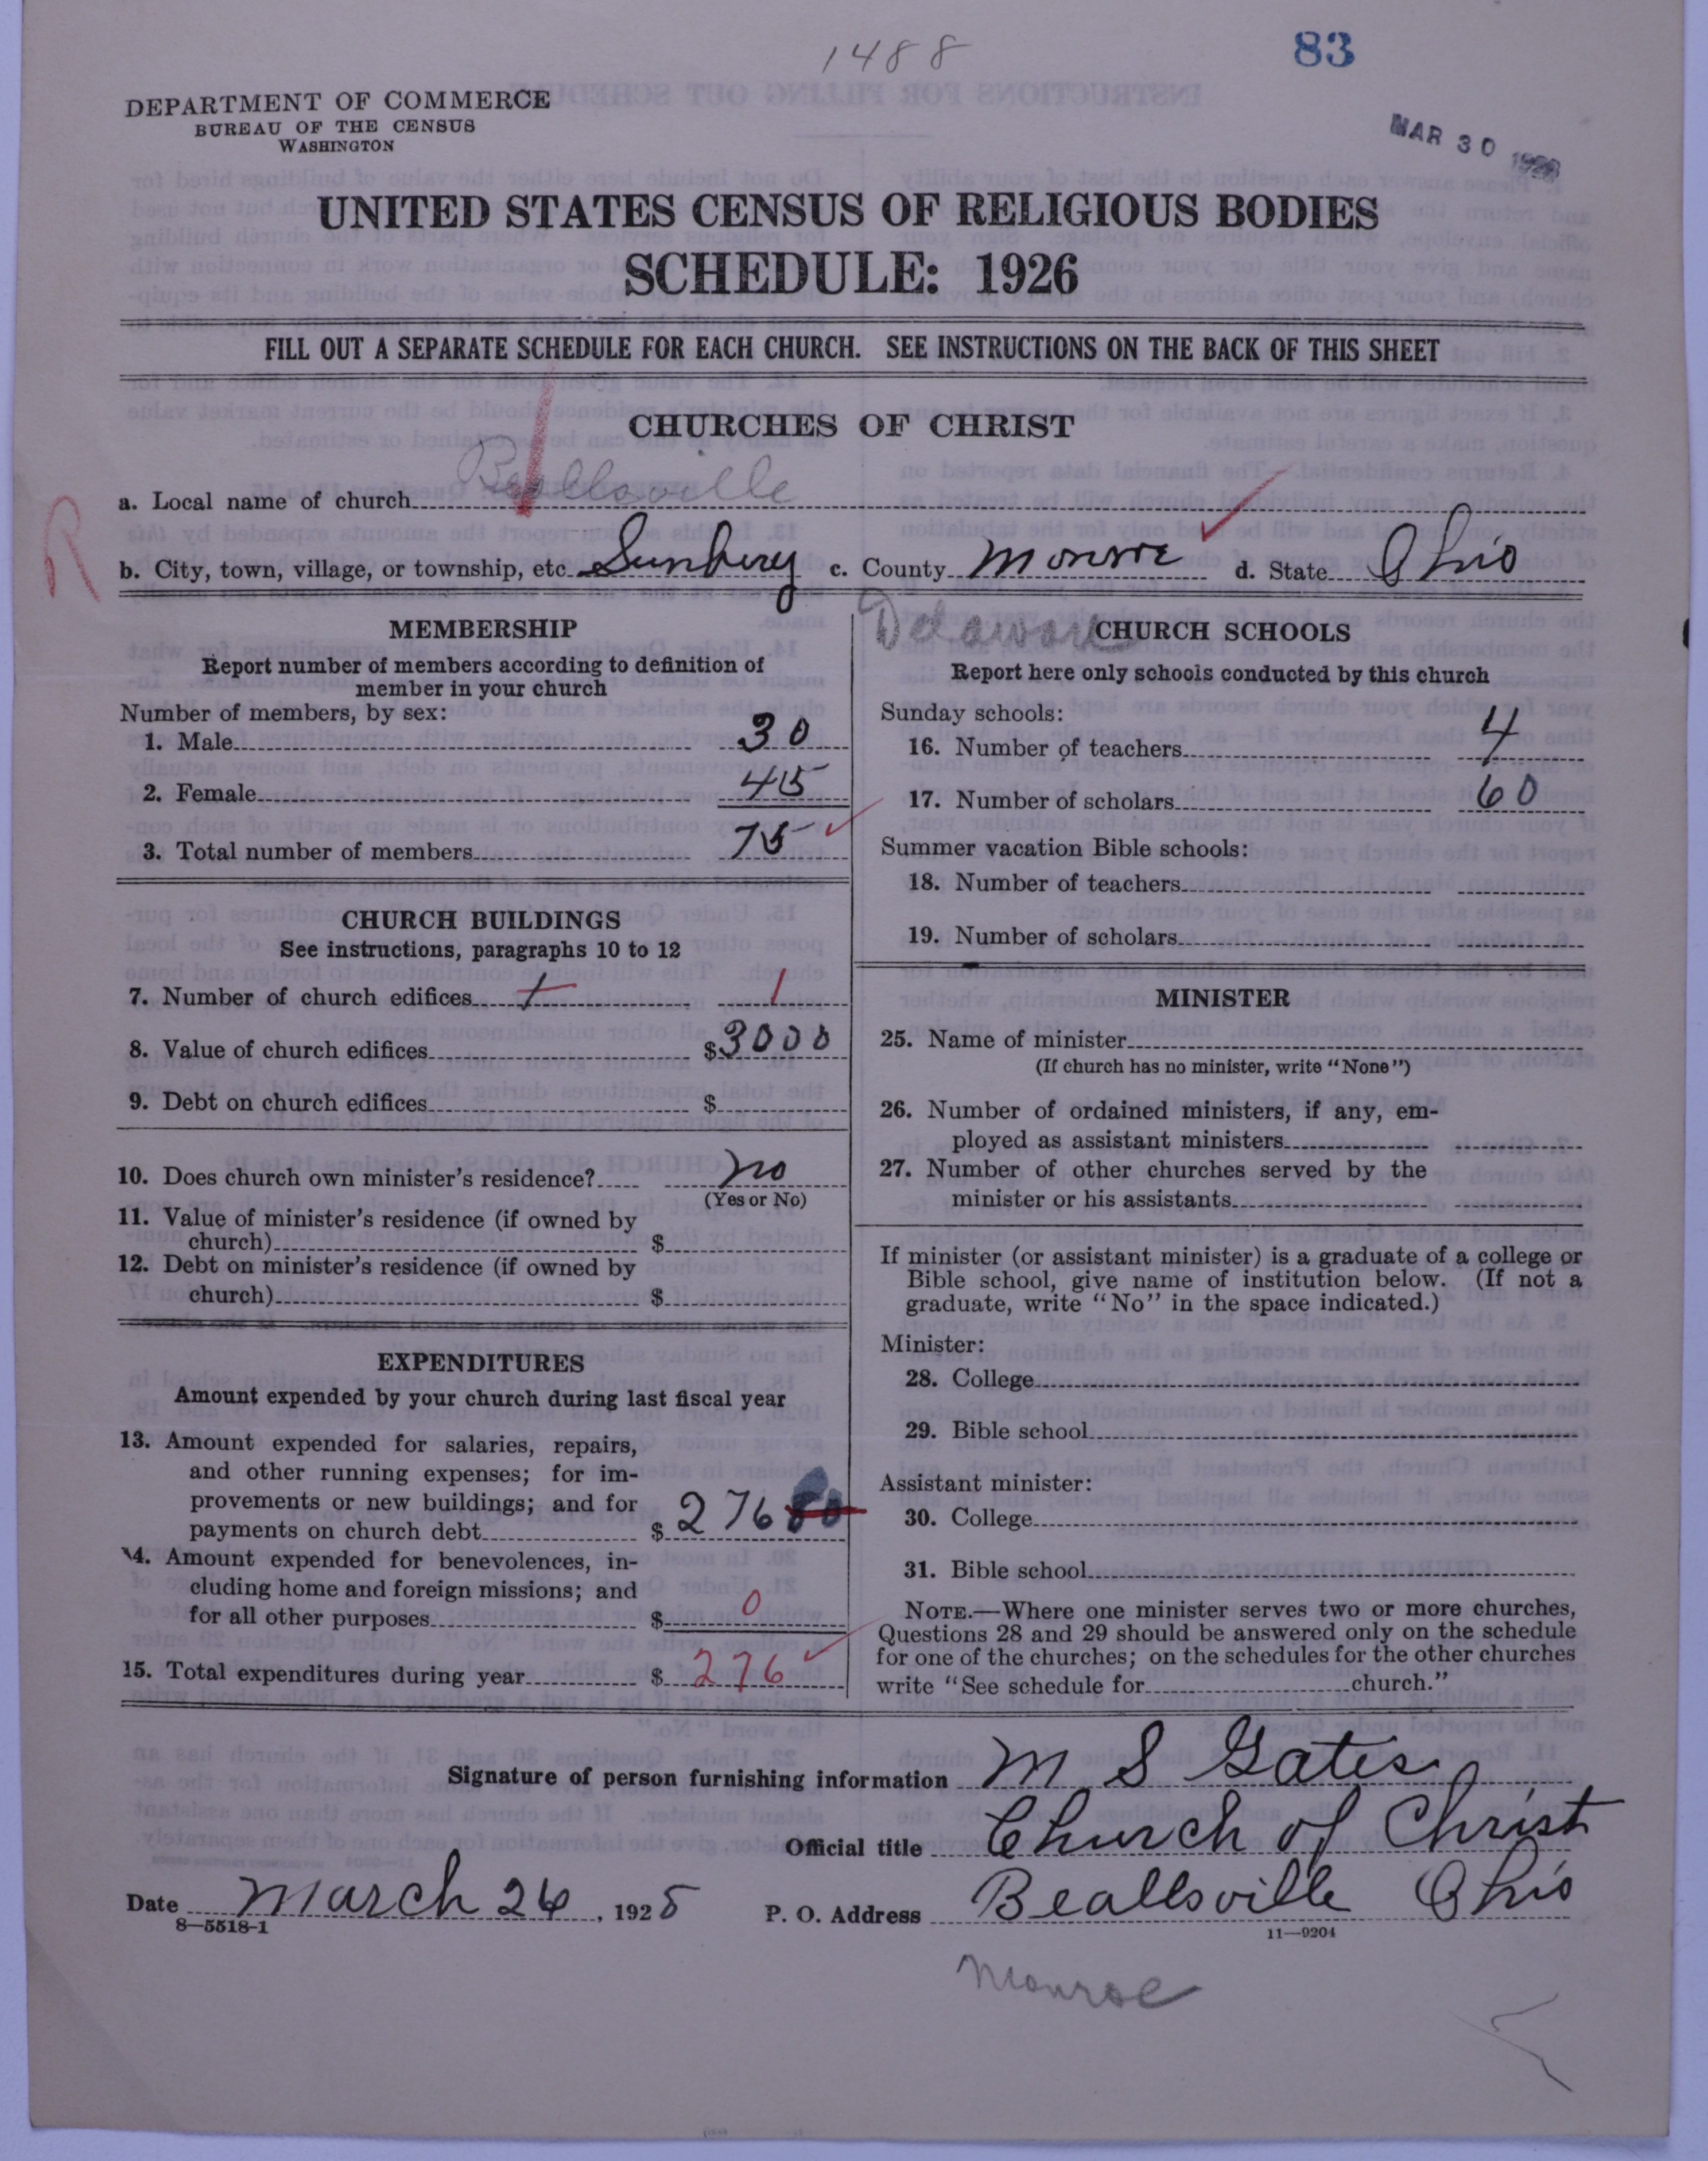 1488
83
DEPARTMENT OF COMMERCE
BUREAU OF THE CENSUS
WASHINGTON
MAR 30 1928
UNITED STATES CENSUS OF RELIGIOUS BODIES
SCHEDULE: 1926
FILL OUT A SEPARATE SCHEDULE FOR EACH CHURCH. SEE INSTRUCTIONS ON THE BACK OF THIS SHEET
CHURCHES OF CHRIST
a. Local name of church Beallsville
R
b. City, town, village, or township, etc. Sunbury c. County Monroe d. State Ohio
Delaware
MEMBERSHIP
Report number of members according to definition of
member in your church
Number of members, by sex:
1. Male 30
2. Female 45
3. Total number of members 75
CHURCH BUILDINGS
See instructions, paragraphs 10 to 12
7. Number of church edifices 1 1
8. Value of church edifices $3000
9. Debt on church edifices $
10. Does church own minister's residence? No
(Yes or No)
11. Value of minister's residence (if owned by
church) $
12. Debt on minister's residence (if owned by
church) $
EXPENDITURES
Amount expended by your church during last fiscal year
13. Amount expended for salaries, repairs,
and other running expenses; for im-
provements or new buildings; and for
payments on church debt $ 276
14. Amount expended for benevolences, in-
cluding home and foreign missions; and
for all other purposes $ 0
15. Total expenditures during year $ 276
CHURCH SCHOOLS
Report here only schools conducted by this church
Sunday schools:
16. Number of teachers 4
17. Number of scholars 60
Summer vacation Bible schools:
18. Number of teachers
19. Number of scholars
MINISTER
25. Name of minister
(If church has no minister, write "None")
26. Number of ordained ministers, if any, em-
ployed as assistant ministers
27. Number of other churches served by the
minister or his assistants
If minister (or assistant minister) is a graduate of a college or
Bible school, give name of institution below. (If not a
graduate, write "No" in the space indicated.)
Minister:
28. College
29. Bible school
Assistant minister:
30. College
31. Bible school
NOTE.—Where one minister serves two or more churches,
Questions 28 and 29 should be answered only on the schedule
for one of the churches; on the schedules for the other churches
write "See schedule for church."
Signature of person furnishing information M S Gates
Official title Church of Christ
Date March 26, 1928 P. O. Address Beallsville Ohio
8—5518-1
11—9204
Monroe